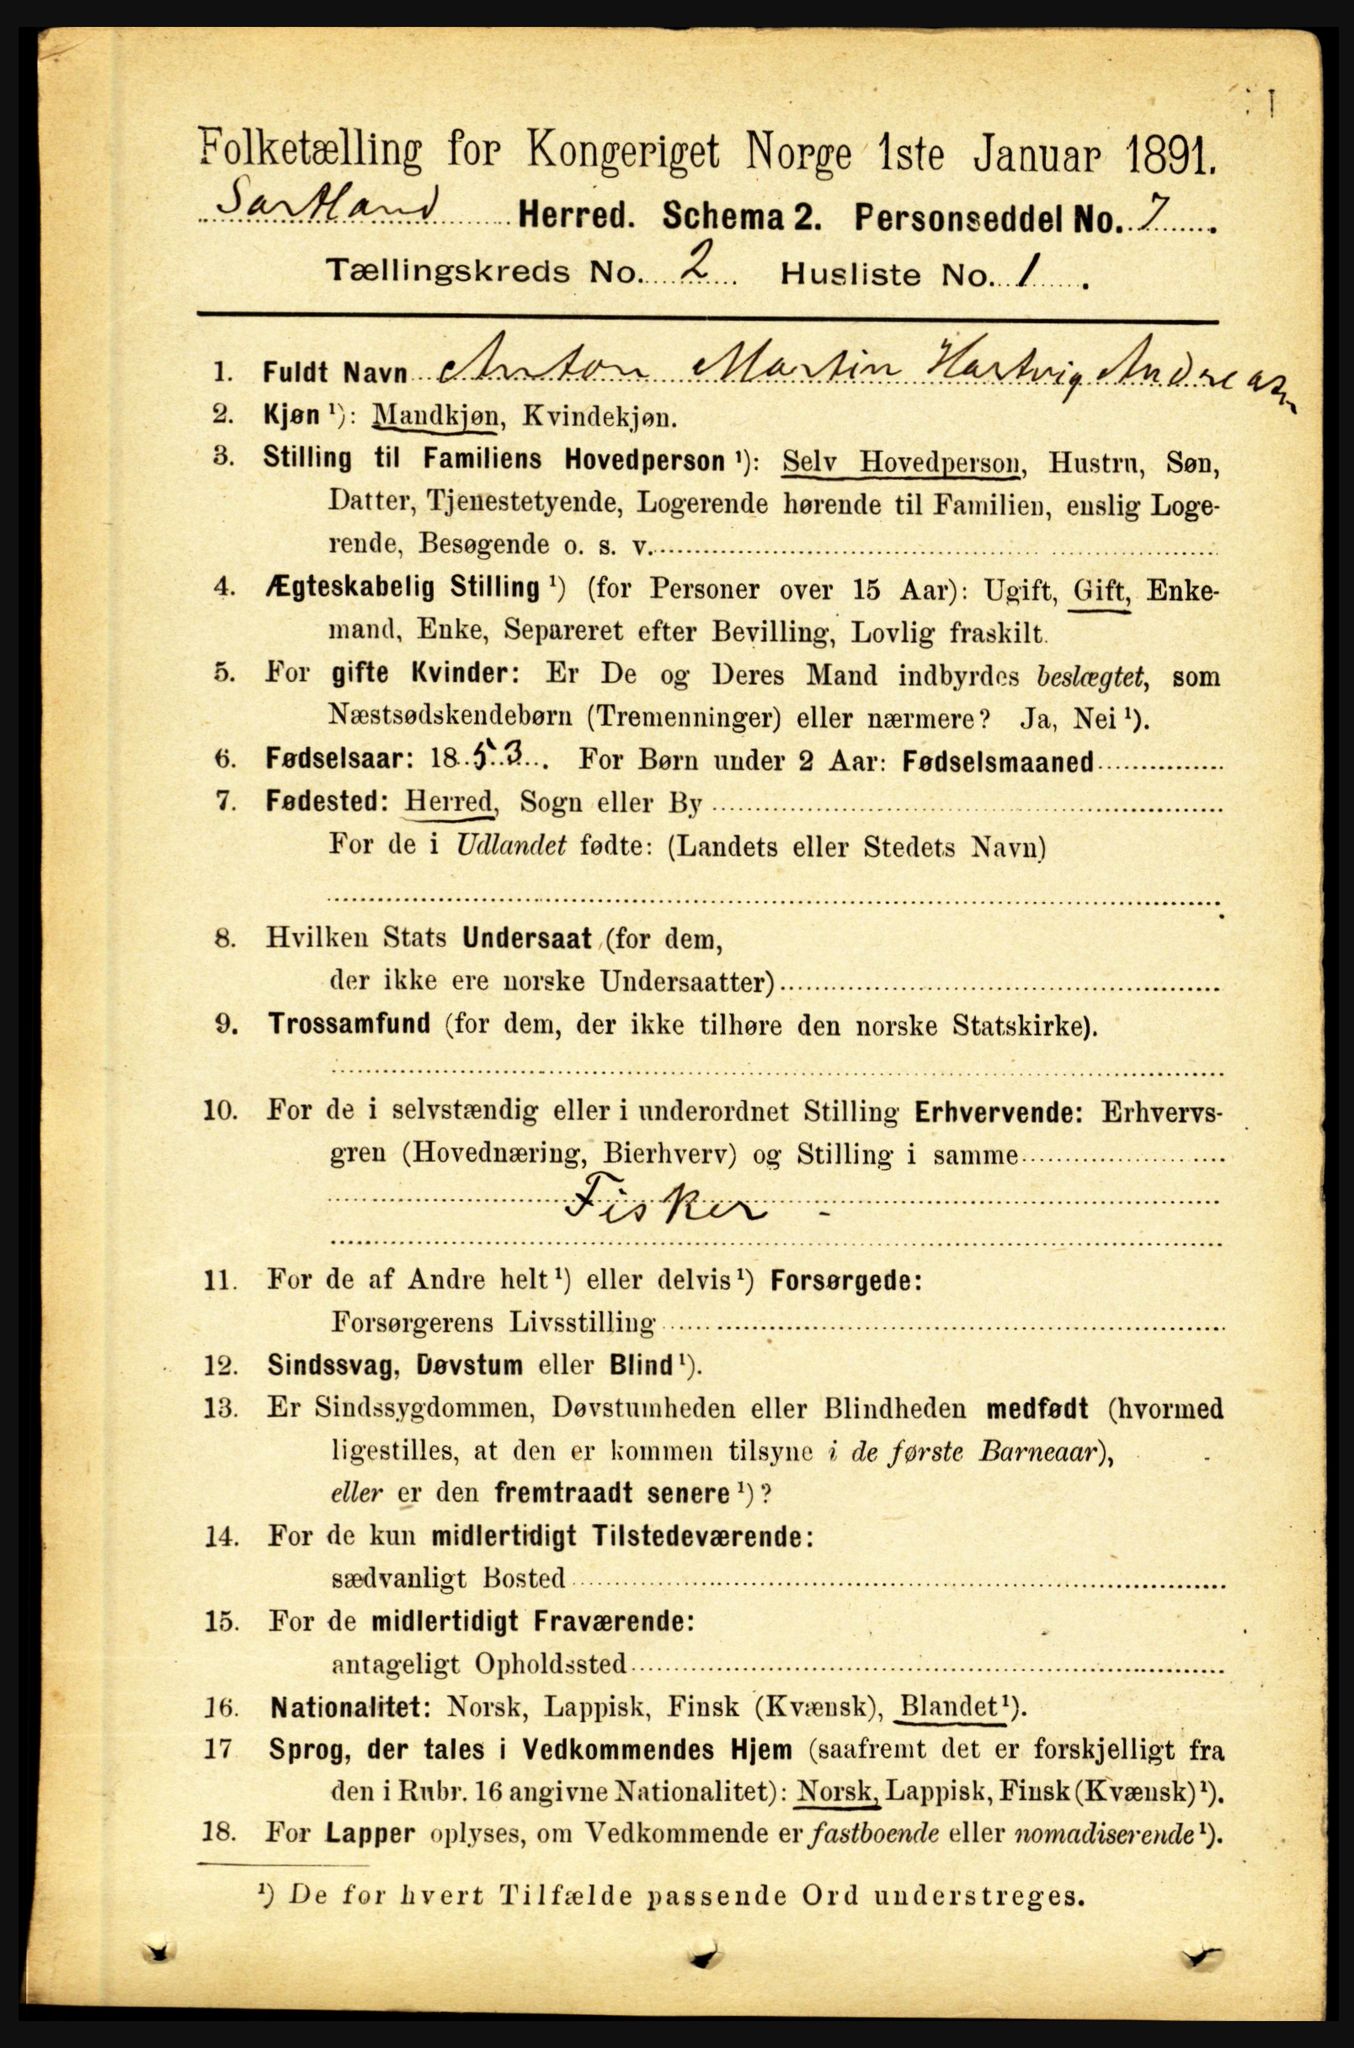 Folketælling for Kongeriget Norge 1ste Januar 1891.
Sortland Herred. Schema 2. Personseddel No. 7.
Tællingskreds No. 2 Husliste No. 1.
1. Fuldt Navn Anton Martin Hartvig Andreasen
2. Kjøn ¹): Mandkjøn, Kvindekjøn.
3. Stilling til Familiens Hovedperson ¹): Selv Hovedperson, Hustru, Søn,
Datter, Tjenestetyende, Logerende hørende til Familien, enslig Loge-
rende, Besøgende o. s. v.
4. Ægteskabelig Stilling ¹) (for Personer over 15 Aar): Ugift, Gift, Enke-
mand, Enke, Separeret efter Bevilling, Lovlig fraskilt.
5. For gifte Kvinder: Er De og Deres Mand indbyrdes beslægtet, som
Næstsødskendebørn (Tremenninger) eller nærmere? Ja, Nei ¹).
6. Fødselsaar: 1853. For Børn under 2 Aar: Fødselsmaaned
7. Fødested: Herred, Sogn eller By
For de i Udlandet fødte: (Landets eller Stedets Navn)
8. Hvilken Stats Undersaat (for dem,
der ikke ere norske Undersaatter)
9. Trossamfund (for dem, der ikke tilhøre den norske Statskirke).
10. For de i selvstændig eller i underordnet Stilling Erhvervende: Erhvervs-
gren (Hovednæring, Bierhverv) og Stilling i samme
Fisker -
11. For de af Andre helt ¹) eller delvis ¹) Forsørgede:
Forsørgerens Livsstilling
12. Sindssvag, Døvstum eller Blind ¹).
13. Er Sindssygdommen, Døvstumheden eller Blindheden medfødt (hvormed
ligestilles, at den er kommen tilsyne i de første Barneaar),
eller er den fremtraadt senere ¹)?
14. For de kun midlertidigt Tilstedeværende:
sædvanligt Bosted
15. For de midlertidigt Fraværende:
antageligt Opholdssted
16. Nationalitet: Norsk, Lappisk, Finsk (Kvænsk), Blandet ¹).
17 Sprog, der tales i Vedkommendes Hjem (saafremt det er forskjelligt fra
den i Rubr. 16 angivne Nationalitet): Norsk, Lappisk, Finsk (Kvænsk) ¹).
18. For Lapper oplyses, om Vedkommende er fastboende eller nomadiserende ¹).
¹) De for hvert Tilfælde passende Ord understreges.